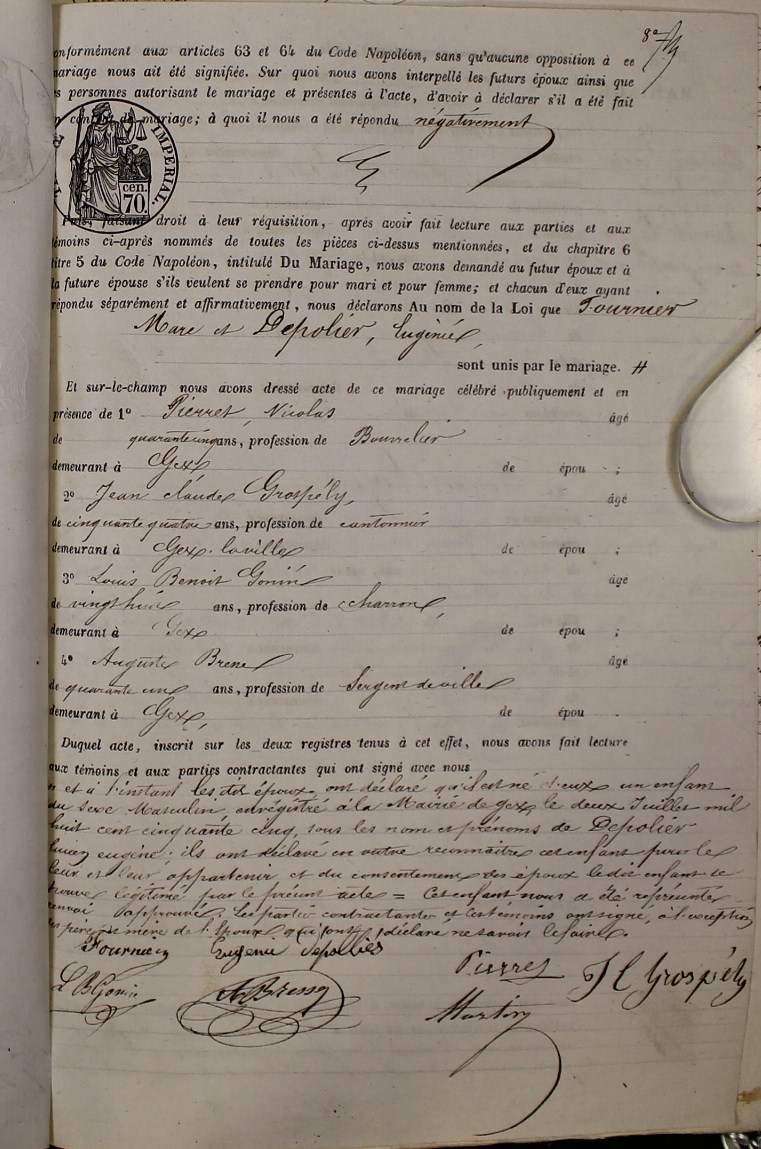 8e
onformément aux articles 63 et 64 du Code Napoléon, sans qu'aucune opposition à ce
mariage nous ait été signifiée. Sur quoi nous avons interpellé les futurs époux ainsi que
s personnes autorisant le mariage et présentes à l'acte, d'avoir à déclarer s'il a été fait
de mariage; à quoi il nous a été répondu négativement
IMPERIAL.
cen.
70.
Puis, faisant droit à leur réquisition, après avoir fait lecture aux parties et aux
témoins ci-après nommés de toutes les pièces ci-dessus mentionnées, et du chapitre 6
titre 5 du Code Napoléon, intitulé Du Mariage, nous avons demandé au futur époux et à
la future épouse s'ils veulent se prendre pour mari et pour femme; et chacun d'eux ayant
répondu séparément et affirmativement, nous déclarons Au nom de la Loi que Fournier
Marc et Depolier, Eugénie,
sont unis par le mariage. #
Et sur-le-champ nous avons dressé acte de ce mariage célébré publiquement et en
présence de 1º Pierret, Nicolas âgé
de quarante cinq ans, profession de Bourrelier
demeurant à Gex de épou ;
2º Jean Claude Grospély, âgé
de cinquante quatre ans, profession de cantonnier
demeurant à Gex-la-ville de épou ;
3º Louis Benoit Gonin âgé
de vingt huit ans, profession de charron,
demeurant à Gex de épou ;
4º Auguste âgé
de quarante un ans, profession de Sergent de ville
demeurant à Gex, de épou .
Duquel acte, inscrit sur les deux registres tenus à cet effet, nous avons fait lecture
aux témoins et aux parties contractantes qui ont signé avec nous
et à l'instant les dits époux ont déclaré qu'il est né d'eux un enfant
du sexe Masculin enrégistré à la Mairie de Gex, le deux Juillet mil
huit cent cinquante cinq, sous les nom et prénoms de Depolier
lucien eugène; ils ont déclaré en outre reconnaître cet enfant pour le
leur et leur appartenir et du consentement des époux le dit enfant se
trouve légitimé par le présent acte = Cet enfant nous a été représenté
renvoi approuvé. Les parties contractantes et les témoins ont signé, à l'exception
des père et mère de l'époux qui ont déclaré ne savoir le faire.
Fournier Eugenie Depollier
Pierret J C Grospély
L B Gonin
Martin